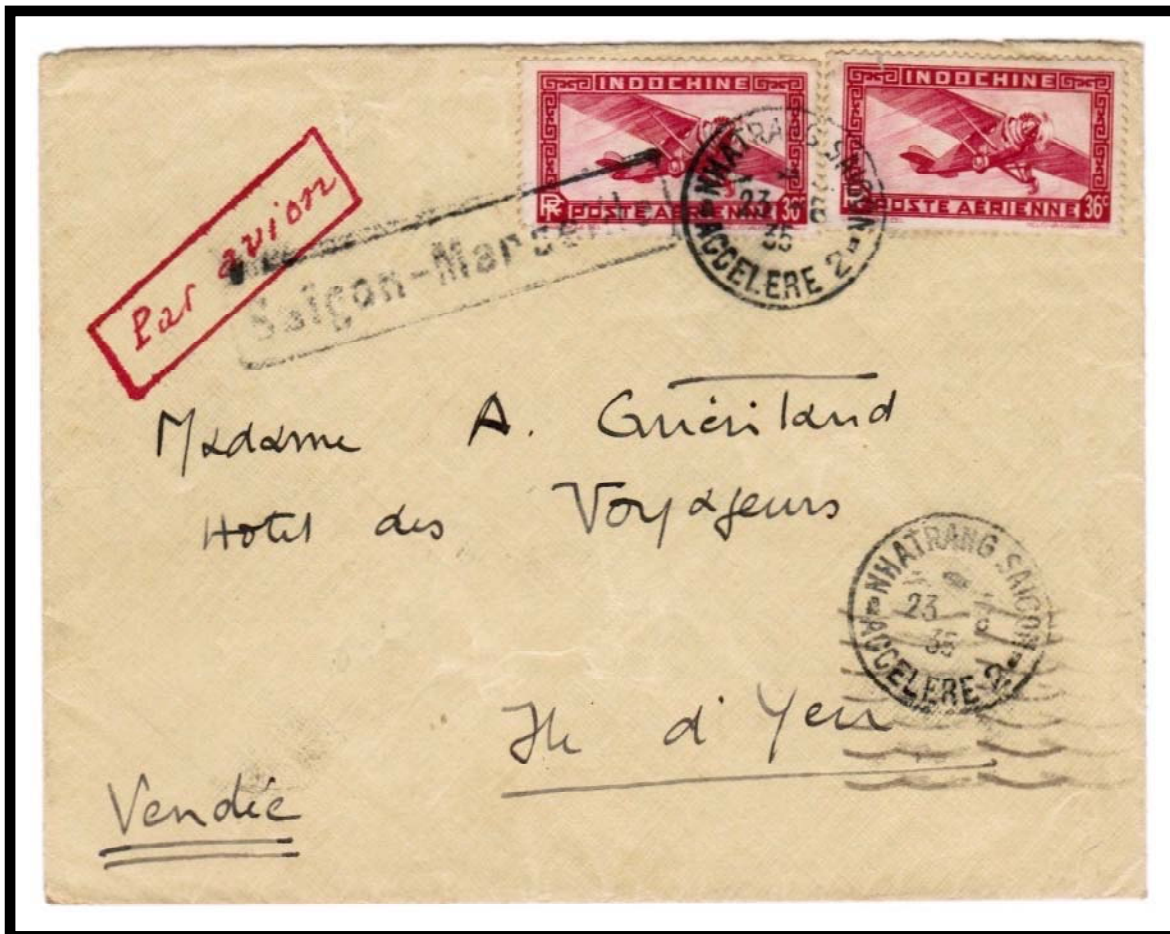 INDOCHINE
RF POSTE AÉRIENNE 36c
INDOCHINE
POSTE AÉRIENNE 36c
NHATRANG SAIGON
23
35
ACCELERE 2
Par avion
Saïgon-Marseille
Madame A.
Hotel des Voyageurs
NHATRANG SAIGON
23
35
ACCELERE 2
Ile d'Yeu
Vendée